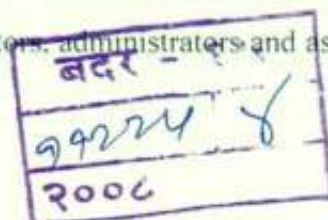 tors, administrators and as
बदर -
११२२५ ४
२००८